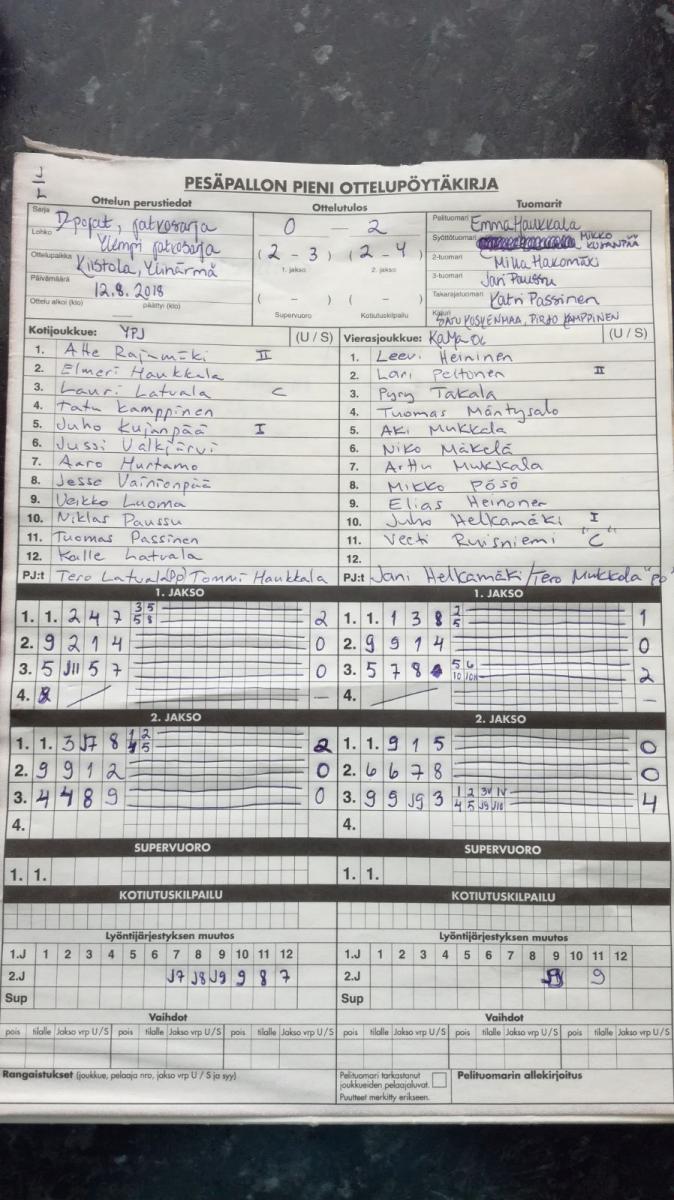 J
L
PESÄPALLON PIENI OTTELUPÖYTÄKIRJA
Ottelun perustiedot
Sarja D-pojat, jatkosarja
Lohko Ylempi jatkosarja
Ottelupaikka Kiistola, Ylihärmä
Päivämäärä 12.8.2018
Ottelu alkoi (klo) päättyi (klo)
Ottelutulos
0 – 2
(2 – 3) (2 – 4)
1. jakso 2. jakso
( – ) ( – )
Supervuoro Kotiutuskilpailu
Tuomarit
Pelituomari Emma Haukkala
Syöttötuomari MIKKO KUJANPÄÄ
2-tuomari Milla Hakomäki
3-tuomari Jari Paussu
Takarajatuomari Katri Passinen
Kirjuri SATU KOSKENMAA, PIRJO KAMPPINEN
Kotijoukkue: YPJ (U / S)
1. Atte Rajamäki II
2. Elmeri Haukkala
3. Lauri Latvala C
4. Tatu Kamppinen
5. Juho Kujanpää I
6. Jussi Välkjärvi
7. Aaro Hurtamo
8. Jesse Vainionpää
9. Veikko Luoma
10. Niklas Paussu
11. Tuomas Passinen
12. Kalle Latvala
PJ:t Tero Latvala (pp) Tommi Haukkala
Vierasjoukkue: KaMa (U / S)
1. Leevi Heininen
2. Lari Peltonen II
3. Pyry Takala
4. Tuomas Mäntysalo
5. Aki Mukkala
6. Niko Mäkelä
7. Arttu Mukkala
8. Mikko Pösö
9. Elias Heinonen
10. Juho Helkamäki I
11. Veeti Ruisniemi "C"
12.
PJ:t Jani Helkamäki / Tero Mukkala "pp"
1. JAKSO
1. 1. 2 4 7 3 5 5 8 2
2. 9 2 1 4 0
3. 5 JII 5 7 0
4. –
1. JAKSO
1. 1. 1 3 8 2 5 1
2. 9 9 1 4 0
3. 5 7 8 5 6 10 10K 2
4. –
2. JAKSO
1. 1. 3 J7 8 1 2 4 5 2
2. 9 9 1 2 0
3. 4 4 8 9 0
4.
2. JAKSO
1. 1. 9 1 5 0
2. 6 6 7 8 0
3. 9 9 J9 3 1 2 3V 1V 4 5 J9 J10 4
4.
SUPERVUORO
1. 1.
SUPERVUORO
1. 1.
KOTIUTUSKILPAILU
KOTIUTUSKILPAILU
Lyöntijärjestyksen muutos
1.J 1 2 3 4 5 6 7 8 9 10 11 12
2.J J7 J8 J9 9 8 7
Sup
Lyöntijärjestyksen muutos
1.J 1 2 3 4 5 6 7 8 9 10 11 12
2.J 9
Sup
Vaihdot
pois tilalle Jakso vrp U/S pois tilalle Jakso vrp U/S pois tilalle Jakso vrp U/S
Vaihdot
pois tilalle Jakso vrp U/S pois tilalle Jakso vrp U/S pois tilalle Jakso vrp U/S
Rangaistukset (joukkue, pelaaja nro, jakso vrp U / S ja syy)
Pelituomari tarkastanut
joukkueiden pelaajaluvat.
Puutteet merkitty erikseen.
Pelituomarin allekirjoitus